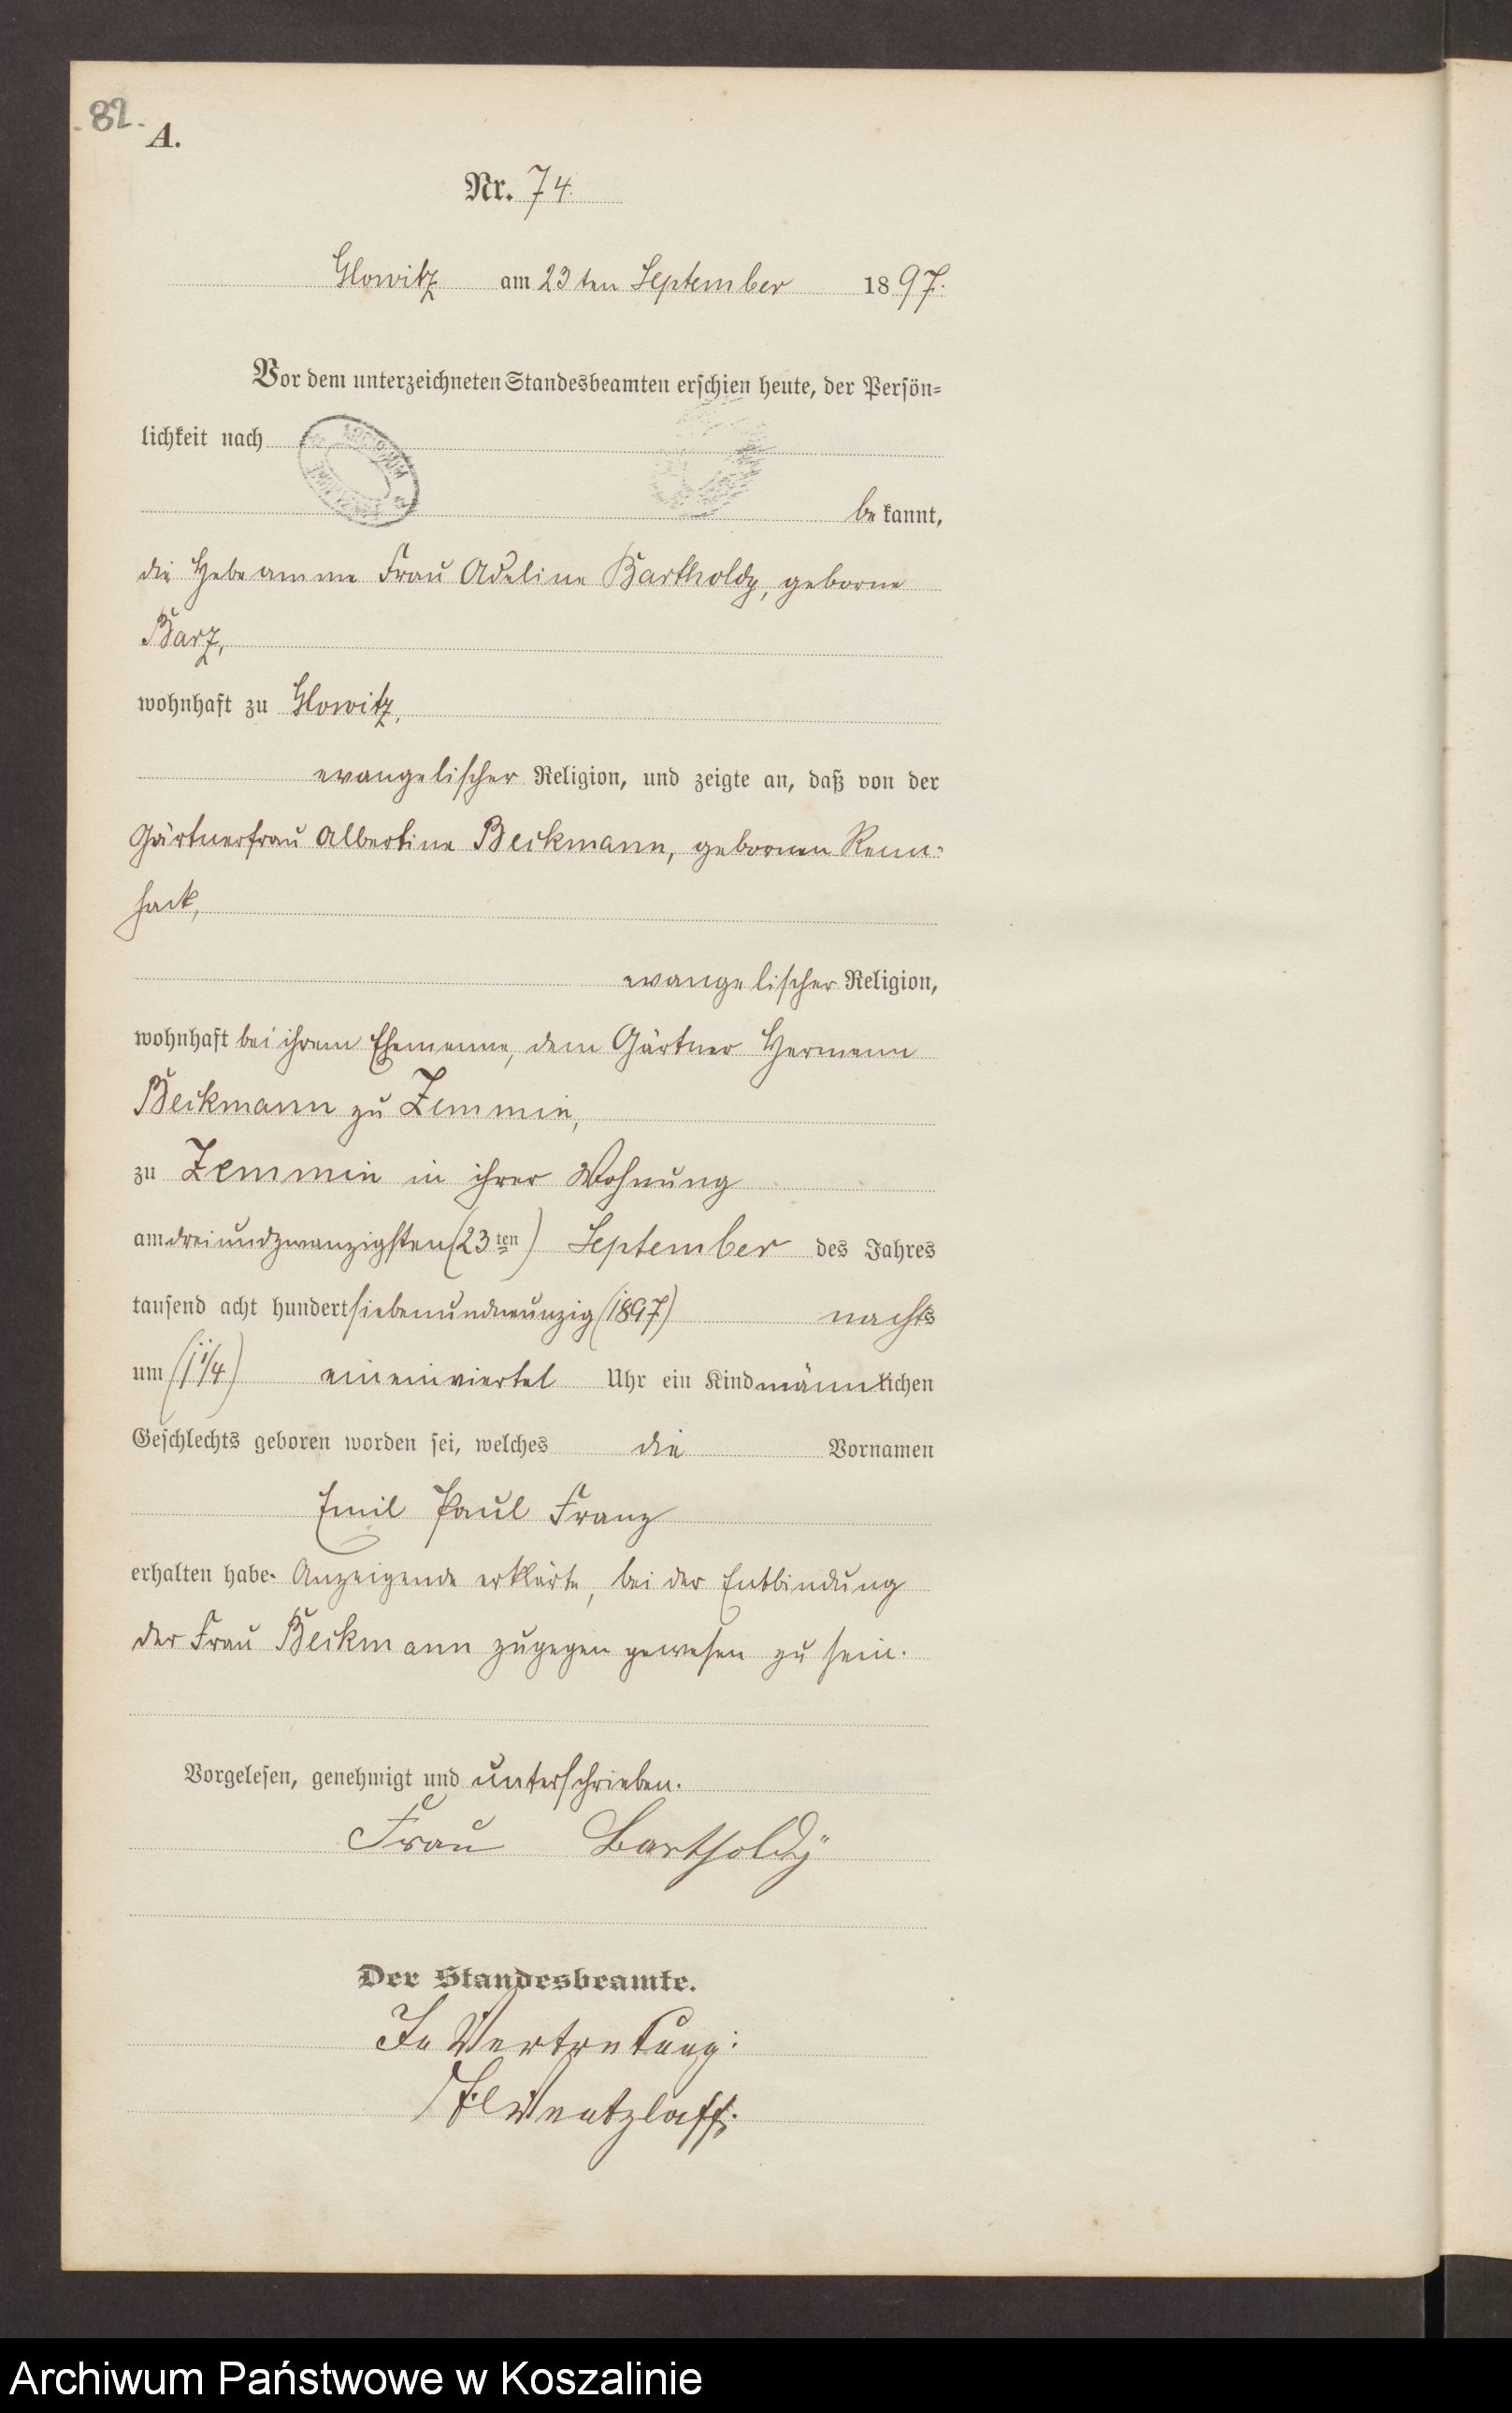 82.
A.
Nr. 74.
Glowitz am 23ten September 1897.
Vor dem unterzeichneten Standesbeamten erschien heute, der Persön=
lichkeit nach
bekannt,
die Hebeamme Frau Adeline Bartholdy, geborne
Barz,
wohnhaft zu Glowitz,
evangelischer Religion, und zeigte an, daß von der
Gärtnerfrau Albertine Beckmann, gebornen Renn=
hack,
evangelischer Religion,
wohnhaft bei ihrem Ehemanne, dem Gärtner Hermann
Beckmann zu Zemmin,
zu Zemmin in ihrer Wohnung
am dreiundzwanzigsten (23ten) September des Jahres
tausend acht hundert siebenundneunzig (1897) nachts
um (1 1/4) eineinviertel Uhr ein Kind männlichen
Geschlechts geboren worden sei, welches die Vornamen
Emil Paul Franz
erhalten habe. Anzeigende erklärte, bei der Entbindung
der Frau Beckmann zugegen gewesen zu sein.
Vorgelesen, genehmigt und unterschrieben.
Frau Bartholdÿ
Der Standesbeamte.
In Vertretung:
Wentzlaff.
Archiwum Państwowe w Koszalinie